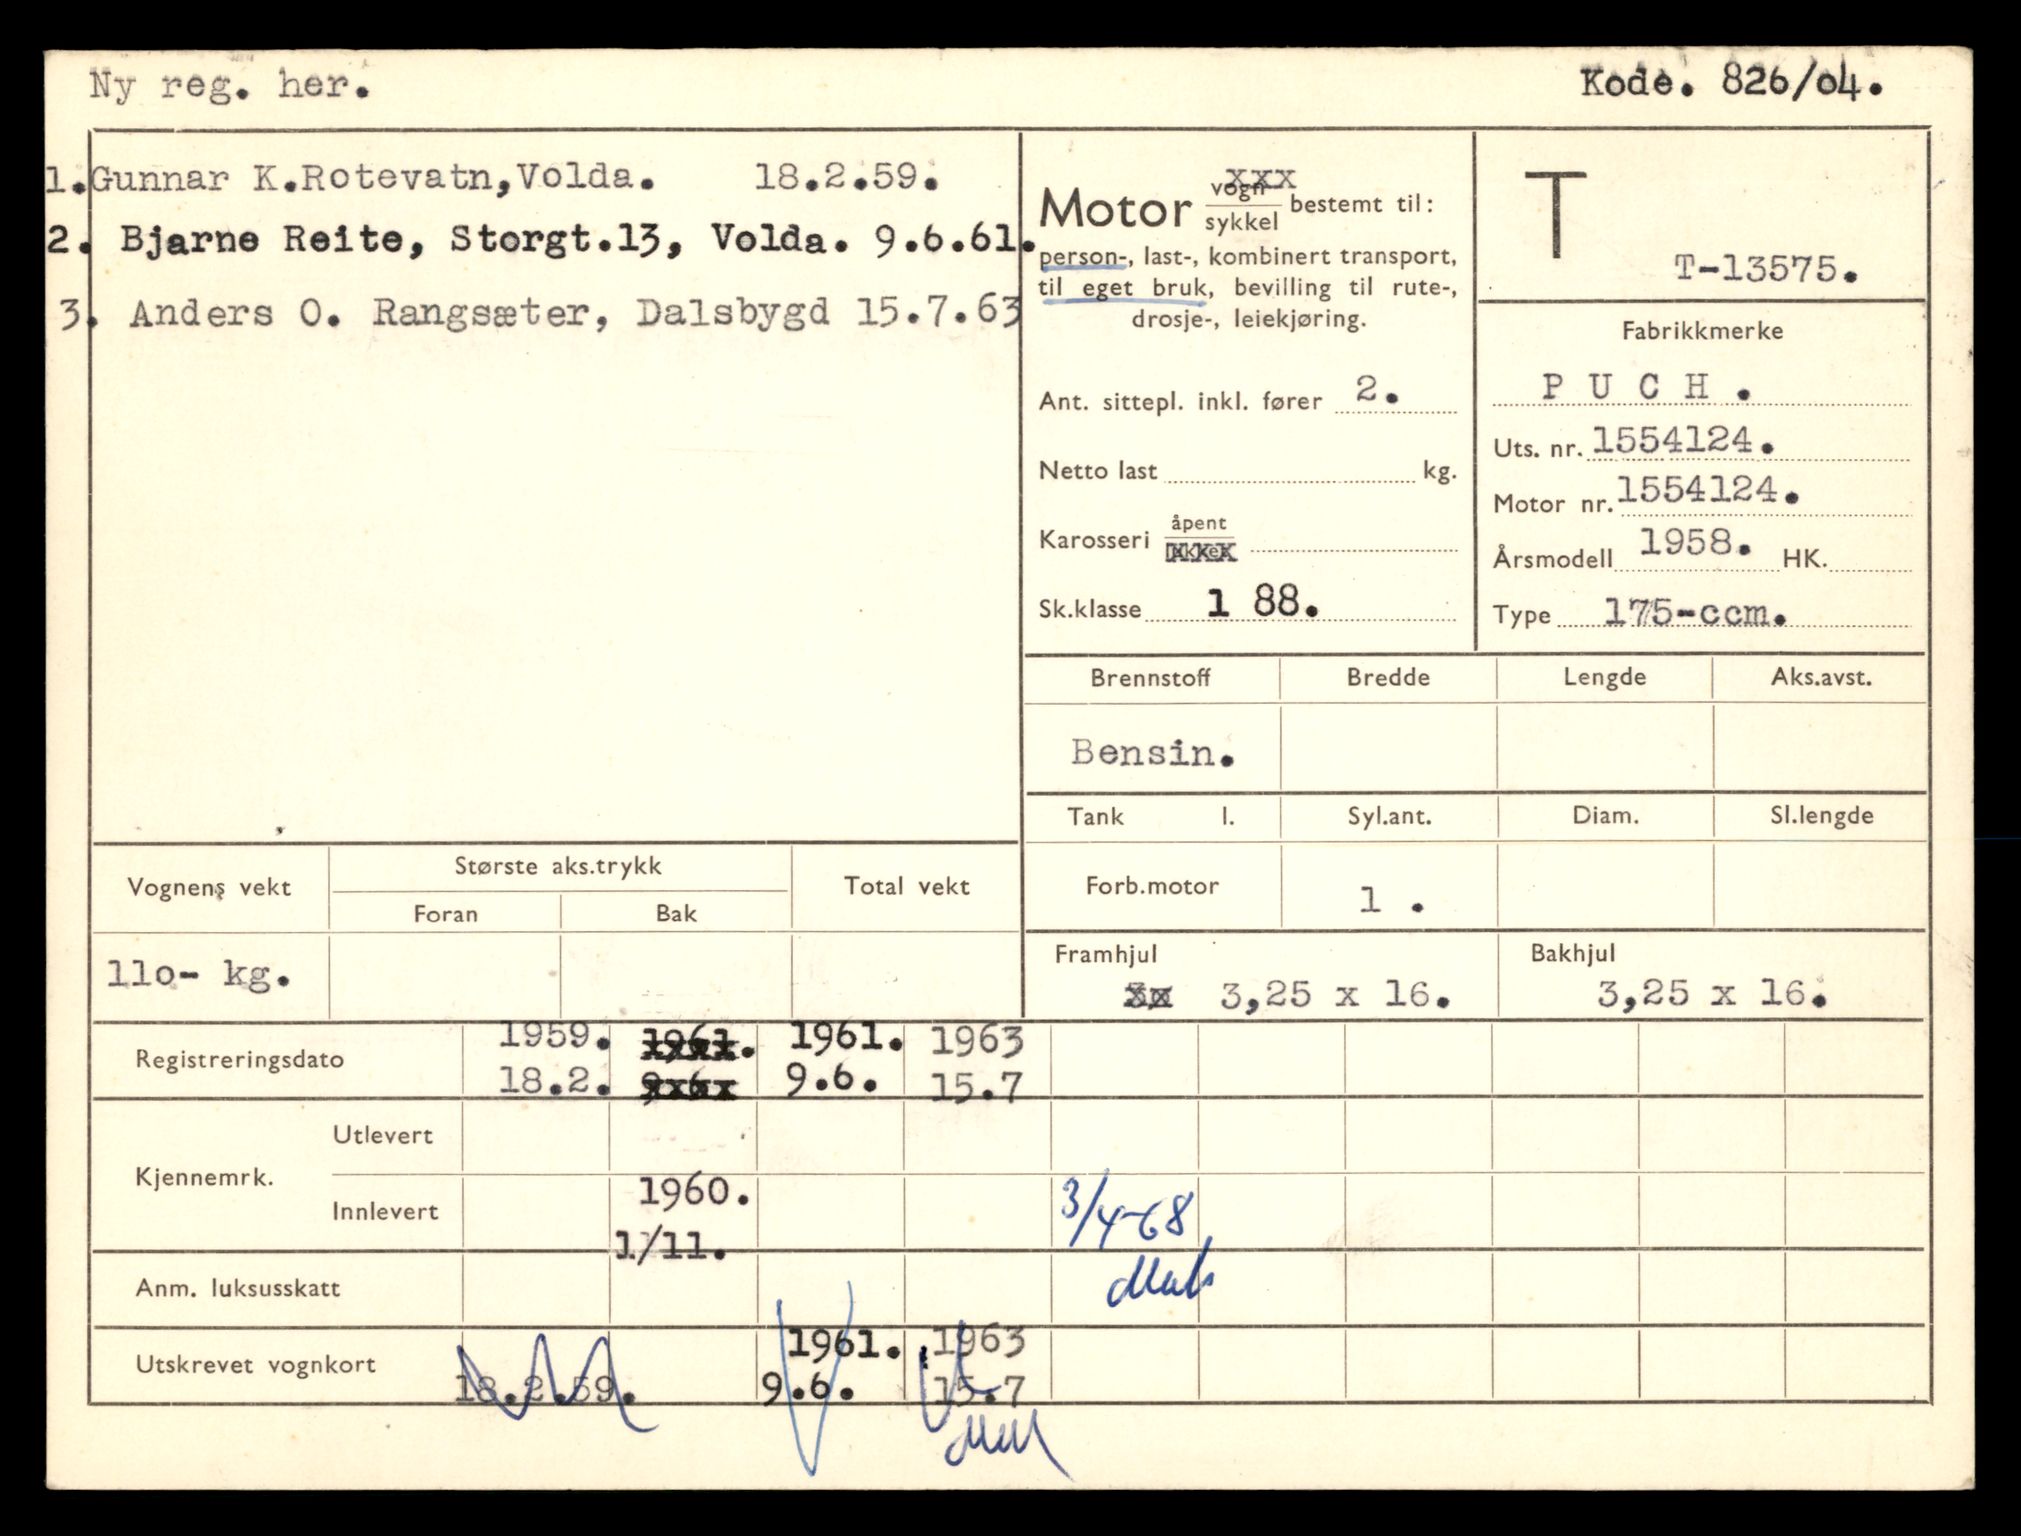 Ny reg. her.
Kode. 826/04.
1. Gunnar K.Rotevatn,Volda. 18.2.59.
2. Bjarne Reite, Storgt.13, Volda. 9.6.61.
3. Anders O. Rangsæter, Dalsbygd 15.7.63
Motor vogn xxx
sykkel bestemt til:
person-, last-, kombinert transport,
til eget bruk, bevilling til rute-,
drosje-, leiekjøring.
Ant. sittepl. inkl. fører 2.
Netto last kg.
Karosseri åpent
lukket
Sk.klasse 1 88.
T
T-13575.
Fabrikkmerke
P U C H .
Uts. nr. 1554124.
Motor nr. 1554124.
Årsmodell 1958. HK.
Type 175-ccm.
Brennstoff Bredde Lengde Aks.avst.
Bensin.
Tank l. Syl.ant. Diam. Sl.lengde
Forb.motor 1 .
Framhjul Bakhjul
3,25 x 16. 3,25 x 16.
Vognens vekt Største aks.trykk Total vekt
Foran Bak
110- kg.
Registreringsdato 1959. 1961. 1961. 1963
18.2. 9.6. 9.6. 15.7
Kjennemrk. Utlevert
Innlevert 1960. 3/4-68
1/11.
Anm. luksusskatt
Utskrevet vognkort 1961. 1963
18.2.59. 9.6. 15.7